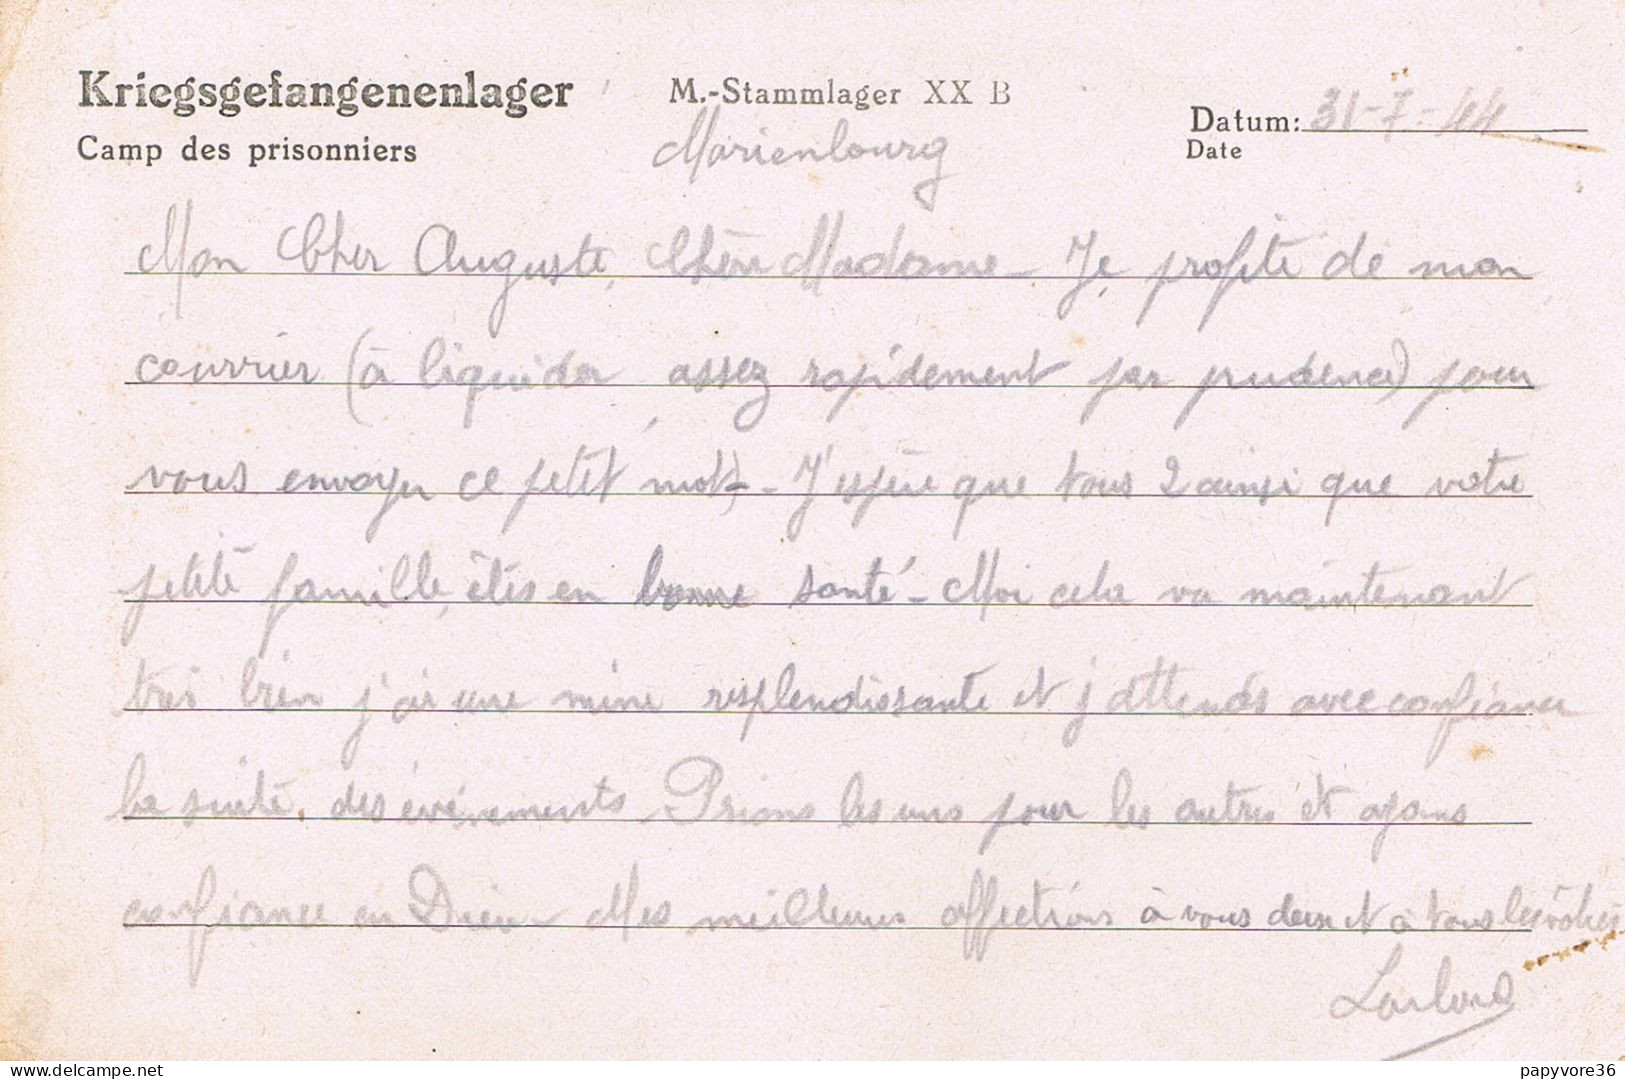 Kriegsgefangenenlager M.-Stammlager XX B
Camp des prisonniers Marienbourg Datum: 31-7-44
Date
Mon Cher Auguste, Chère Madame - Je profite de mon
courrier (à liquider assez rapidement par prudence) pour
vous envoyer ce petit mot - J'espère que tous 2 ainsi que votre
petite famille, êtes en bonne santé - Moi cela va maintenant
très bien j'ai une mine resplendissante et j'attends avec confiance
la suite des événements. Prions les uns pour les autres et ayons
confiance en Dieu - Mes meilleures affections à vous deux et à tous les vôtres
delcampe.net
papyvore36